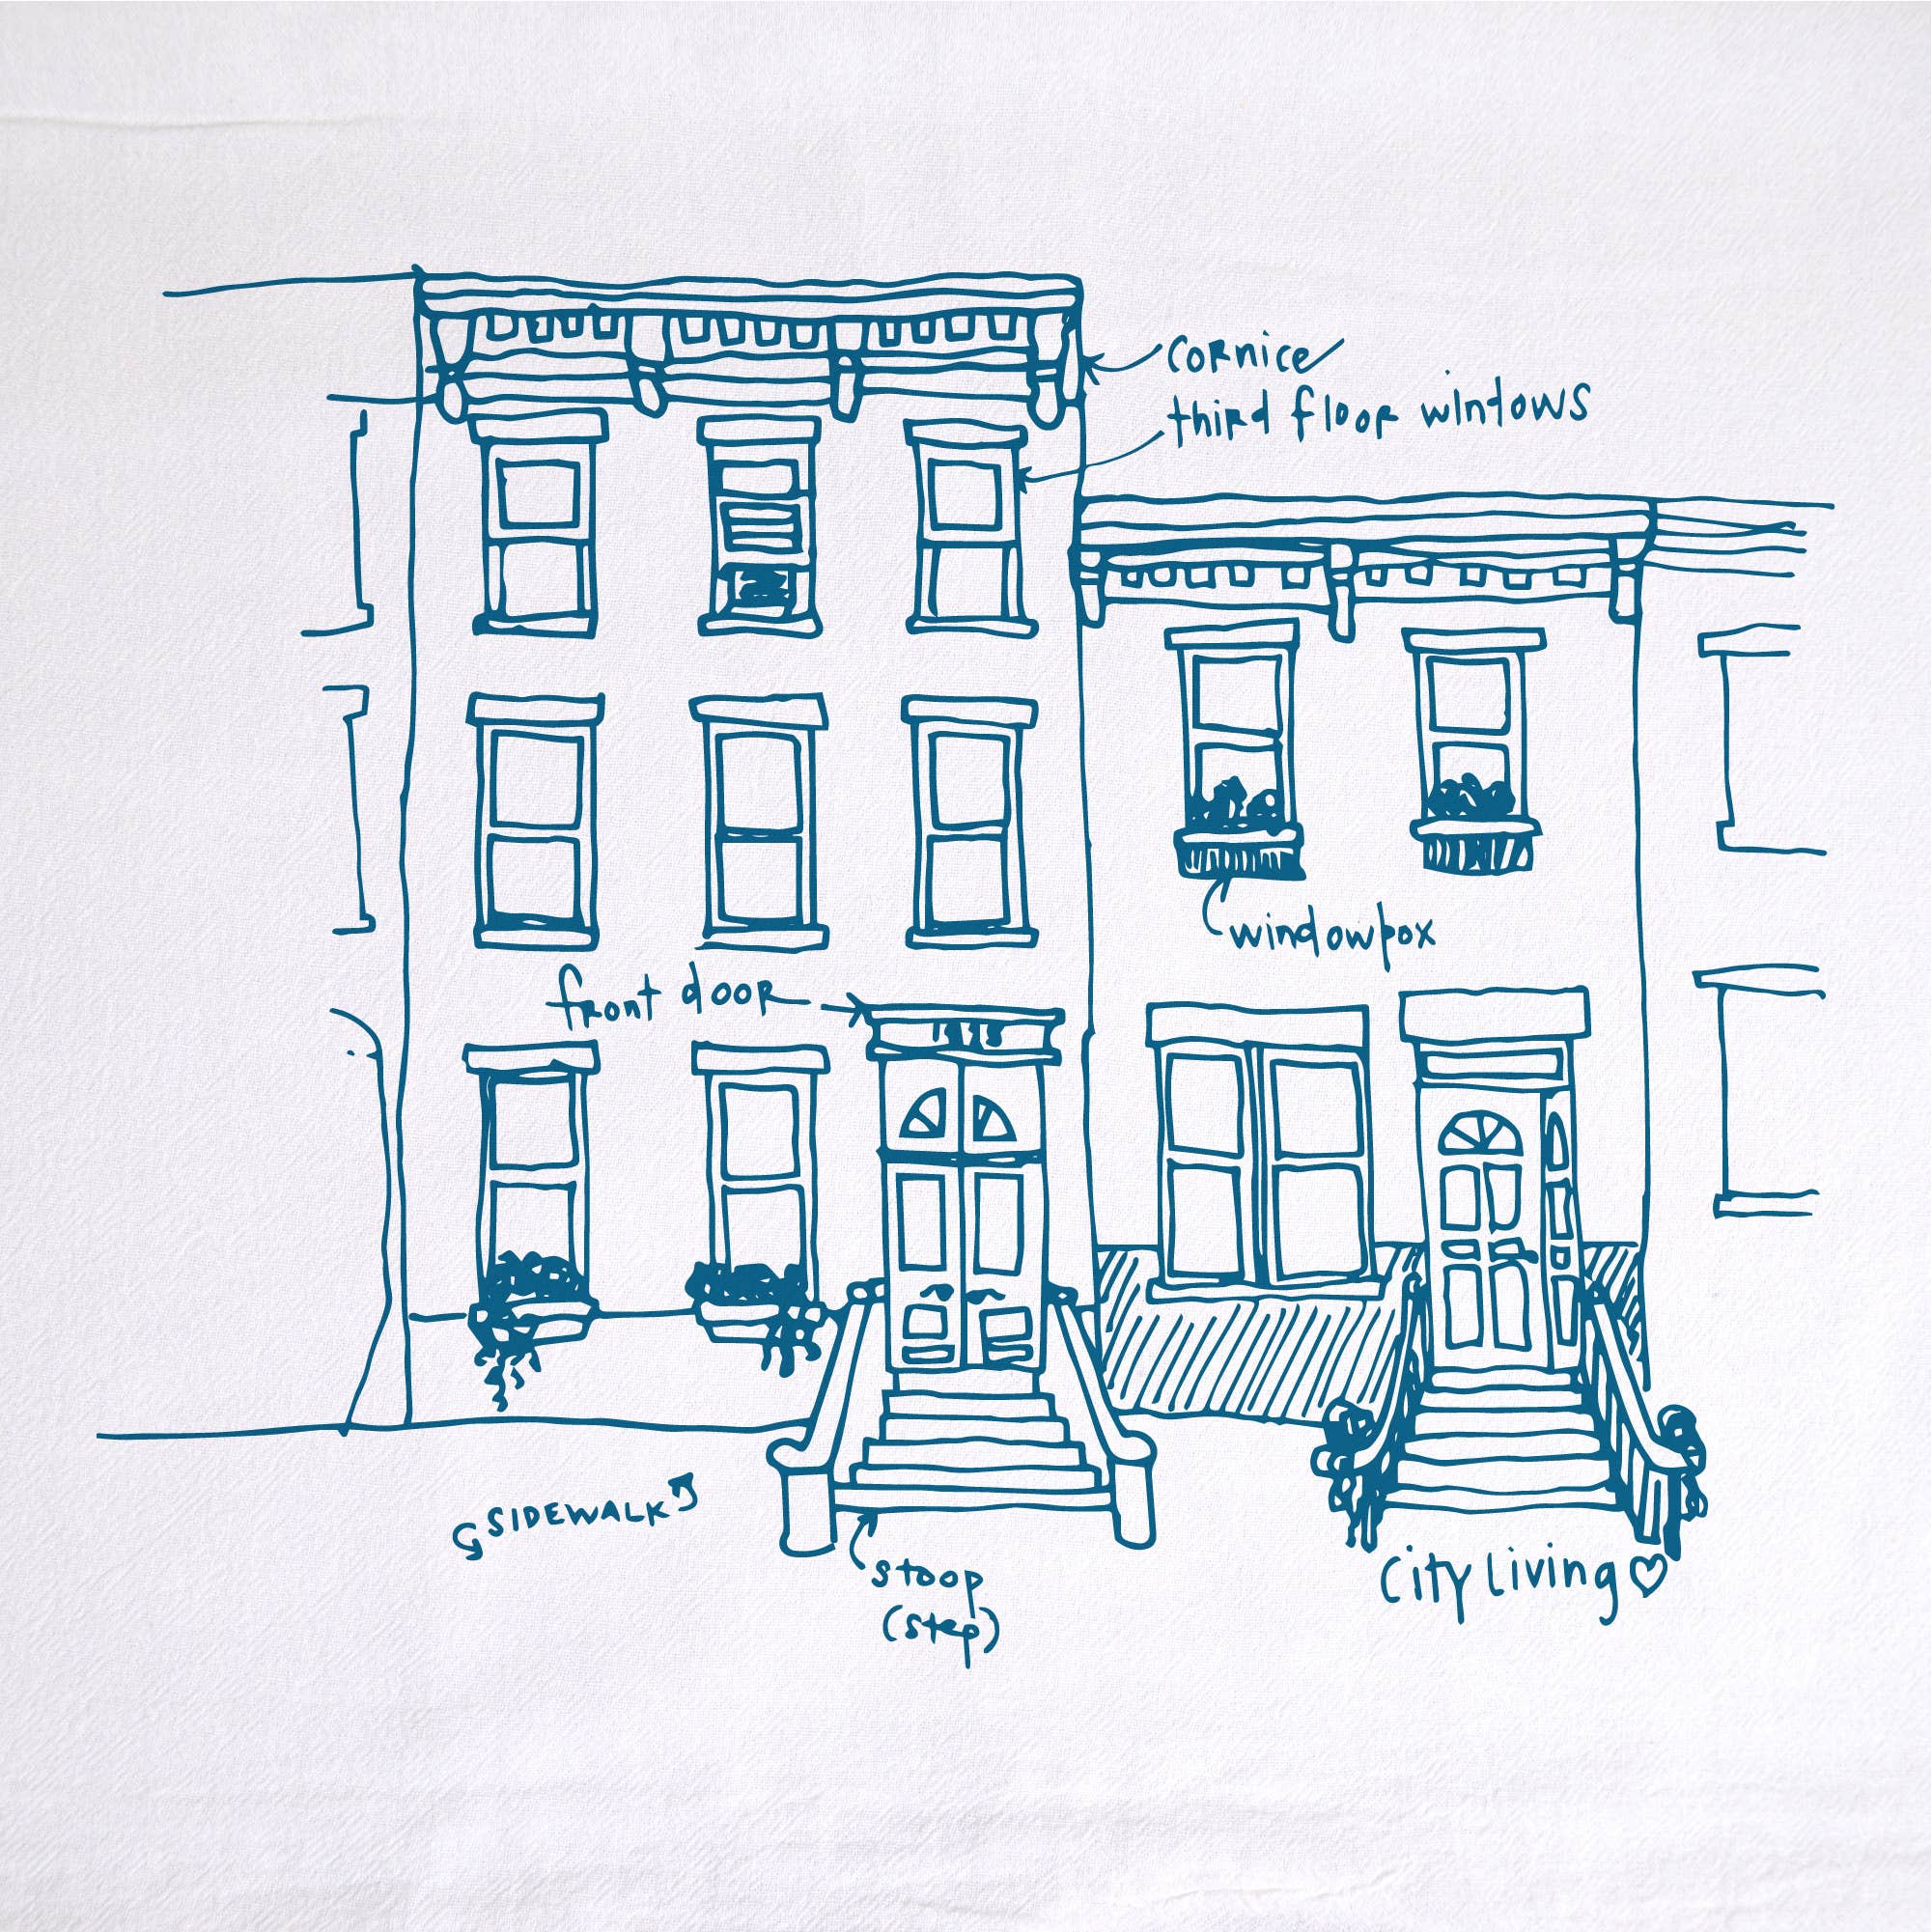 cornice
third floor windows
windowbox
front door
SIDEWALK
stoop
(step)
City Living